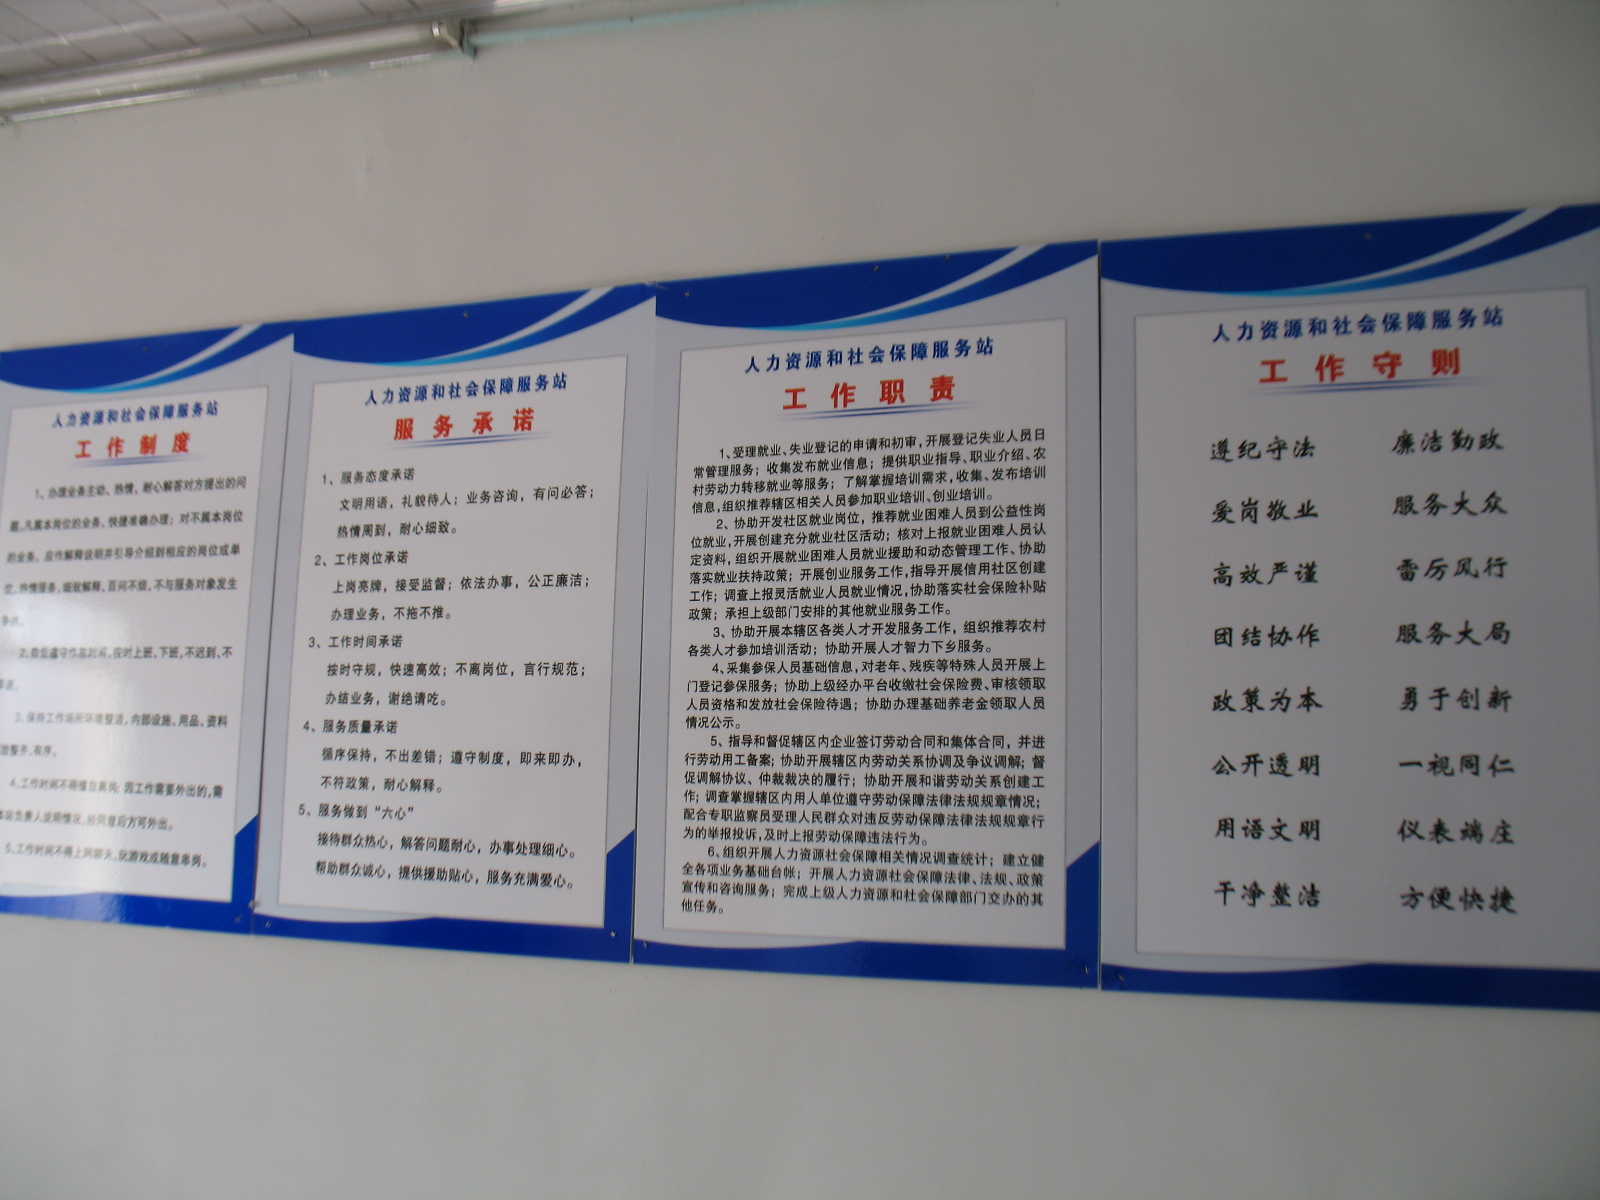 人力资源和社会保障服务站
工作制度
1、办理业务主动、热情，耐心解答对方提出的问
题。凡属本岗位的业务，快捷准确办理；对不属本岗位
的业务，应作解释说明并引导介绍到相应的岗位或单
位。热情服务、细致解释，百问不烦，不与服务对象发生
争执。
遵守作息时间，按时上班、下班，不迟到、不
早退。
3、保持工作场所环境整洁，内部设施、用品、资料
整齐、有序。
4、工作时间不得擅自离岗；因工作需要外出的，需
负责人说明情况，经同意后方可外出。
5、工作时间不得上网聊天、玩游戏或随意串岗。
人力资源和社会保障服务站
服务承诺
1、服务态度承诺
文明用语，礼貌待人；业务咨询，有问必答；
热情周到，耐心细致。
2、工作岗位承诺
上岗亮牌，接受监督；依法办事，公正廉洁；
办理业务，不拖不推。
3、工作时间承诺
按时守规，快速高效；不离岗位，言行规范；
办结业务，谢绝请吃。
4、服务质量承诺
循序保持，不出差错；遵守制度，即来即办，
不符政策，耐心解释。
5、服务做到“六心”
接待群众热心，解答问题耐心，办事处理细心。
帮助群众诚心，提供援助贴心，服务充满爱心。
人力资源和社会保障服务站
工作职责
1、受理就业、失业登记的申请和初审，开展登记失业人员日
常管理服务；收集发布就业信息；提供职业指导、职业介绍、农
村劳动力转移就业等服务；了解掌握培训需求，收集、发布培训
信息，组织推荐辖区相关人员参加职业培训、创业培训。
2、协助开发社区就业岗位，推荐就业困难人员到公益性岗
位就业，开展创建充分就业社区活动；核对上报就业困难人员认
定资料，组织开展就业困难人员就业援助和动态管理工作、协助
落实就业扶持政策；开展创业服务工作，指导开展信用社区创建
工作；调查上报灵活就业人员就业情况，协助落实社会保险补贴
政策；承担上级部门安排的其他就业服务工作。
3、协助开展本辖区各类人才开发服务工作，组织推荐农村
各类人才参加培训活动；协助开展人才智力下乡服务。
4、采集参保人员基础信息，对老年、残疾等特殊人员开展上
门登记参保服务；协助上级经办平台收缴社会保险费、审核领取
人员资格和发放社会保险待遇；协助办理基础养老金领取人员
情况公示。
5、指导和督促辖区内企业签订劳动合同和集体合同，并进
行劳动用工备案；协助开展辖区内劳动关系协调及争议调解；督
促调解协议、仲裁裁决的履行；协助开展和谐劳动关系创建工
作；调查掌握辖区内用人单位遵守劳动保障法律法规规章情况；
配合专职监察员受理人民群众对违反劳动保障法律法规规章行
为的举报投诉，及时上报劳动保障违法行为。
6、组织开展人力资源社会保障相关情况调查统计；建立健
全各项业务基础台帐；开展人力资源社会保障法律、法规、政策
宣传和咨询服务；完成上级人力资源和社会保障部门交办的其
他任务。
人力资源和社会保障服务站
工作守则
遵纪守法 廉洁勤政
爱岗敬业 服务大众
高效严谨 雷厉风行
团结协作 服务大局
政策为本 勇于创新
公开透明 一视同仁
用语文明 仪表端庄
干净整洁 方便快捷